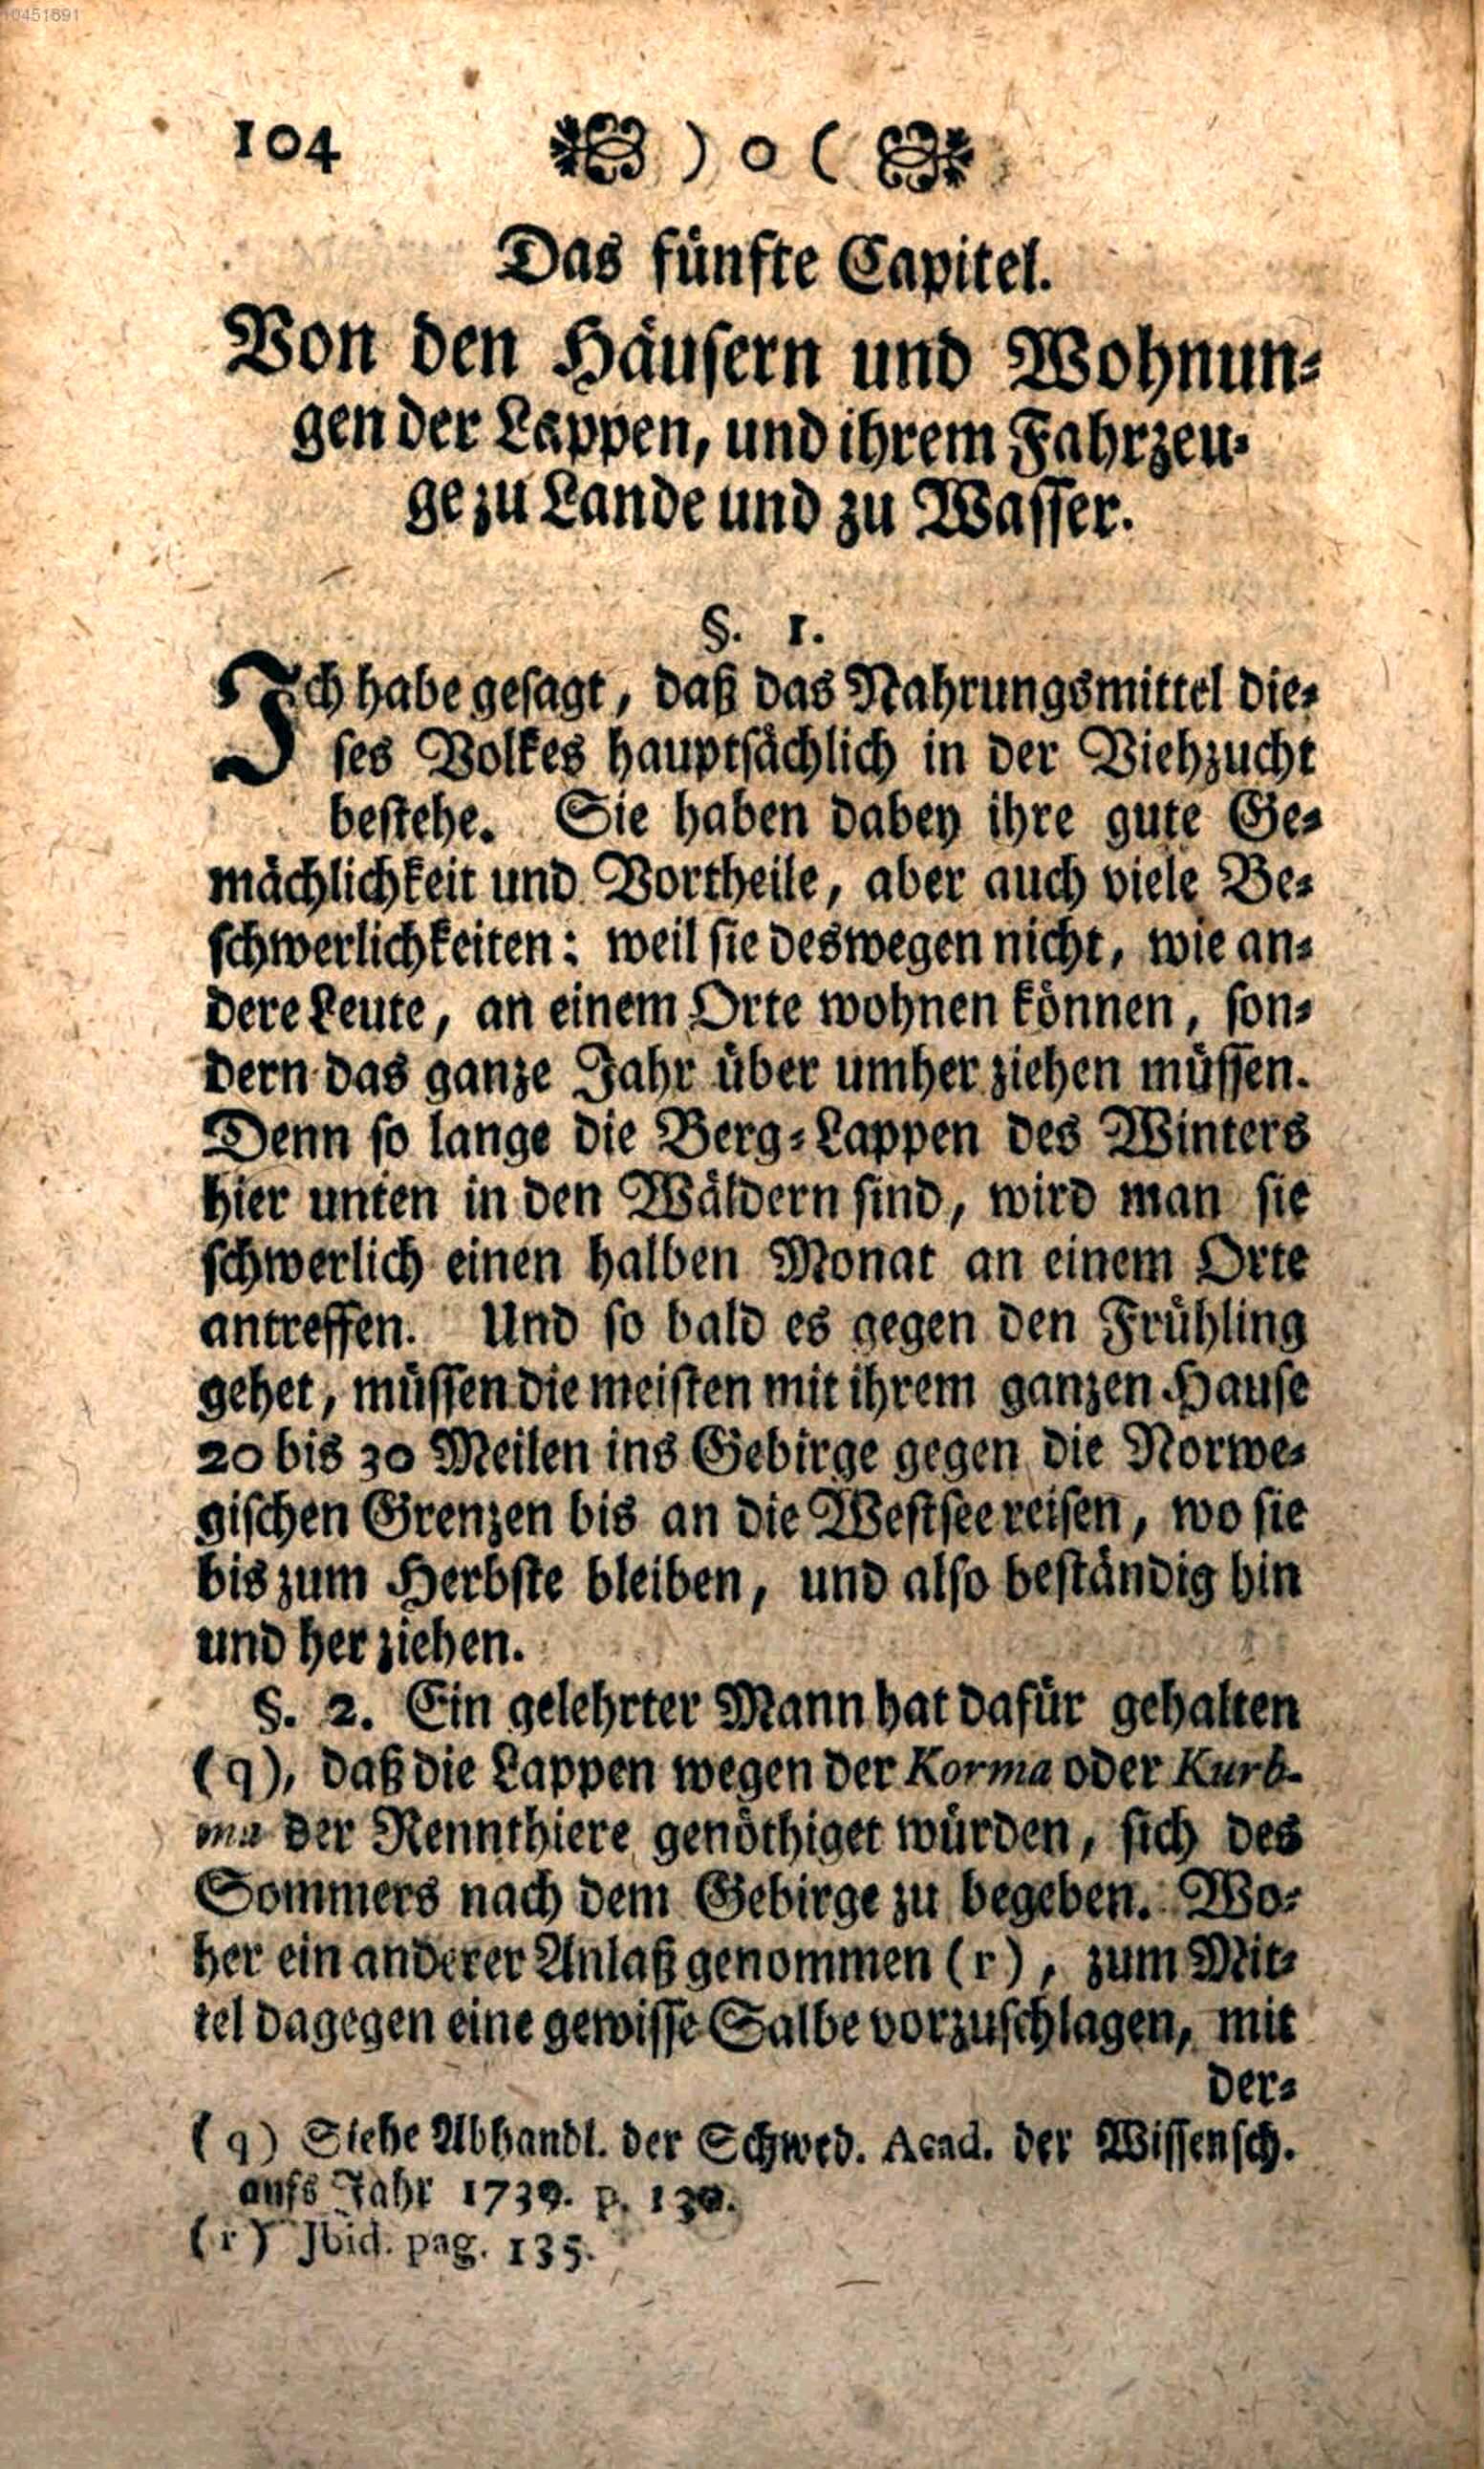 10451691
104 ) o (
Das fünfte Capitel.
Von den Häusern und Wohnun-
gen der Lappen, und ihrem Fahrzeu-
ge zu Lande und zu Wasser.
§. 1.
Ich habe gesagt, daß das Nahrungsmittel die-
ses Volkes hauptsächlich in der Viehzucht
bestehe. Sie haben dabey ihre gute Ge-
mächlichkeit und Vortheile, aber auch viele Be-
schwerlichkeiten: weil sie deswegen nicht, wie an-
dere Leute, an einem Orte wohnen können, son-
dern das ganze Jahr über umher ziehen müssen.
Denn so lange die Berg-Lappen des Winters
hier unten in den Wäldern sind, wird man sie
schwerlich einen halben Monat an einem Orte
antreffen. Und so bald es gegen den Frühling
gehet, müssen die meisten mit ihrem ganzen Hause
20 bis 30 Meilen ins Gebirge gegen die Norwe-
gischen Grenzen bis an die Westsee reisen, wo sie
bis zum Herbste bleiben, und also beständig hin
und her ziehen.
§. 2. Ein gelehrter Mann hat dafür gehalten
(q), daß die Lappen wegen der Korma oder Kurb-
ma der Rennthiere genöthiget würden, sich des
Sommers nach dem Gebirge zu begeben. Wo-
her ein anderer Anlaß genommen (r), zum Mit-
tel dagegen eine gewisse Salbe vorzuschlagen, mit
der-
(q) Siehe Abhandl. der Schwed. Acad. der Wissensch.
aufs Jahr 1739. p.
(r) Ibid. pag. 135.